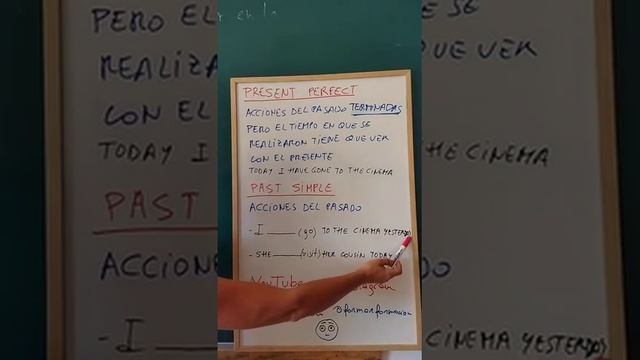 PRESENT PERFECT
ACCIONES DEL PASADO TERMINADAS
PERO EL TIEMPO EN QUE SE
REALIZARON TIENE QUE VER
CON EL PRESENTE
TODAY I HAVE GONE TO THE CINEMA
PAST SIMPLE
ACCIONES DEL PASADO
- I ____ (go) TO THE CINEMA YESTERDAY
- SHE ____ (visit) HER COUSIN TODAY
YouTube
@formorformacion